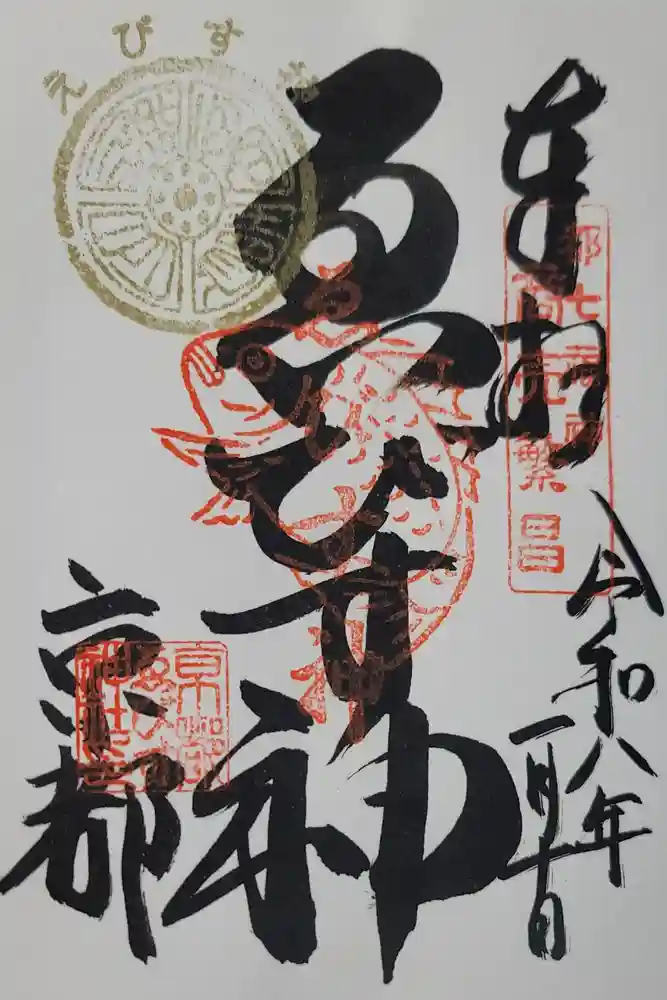 奉拝
都七福神
商売繁昌
令和八年
一月十日
ゑびす神
えびす
京都
京都
ゑびす